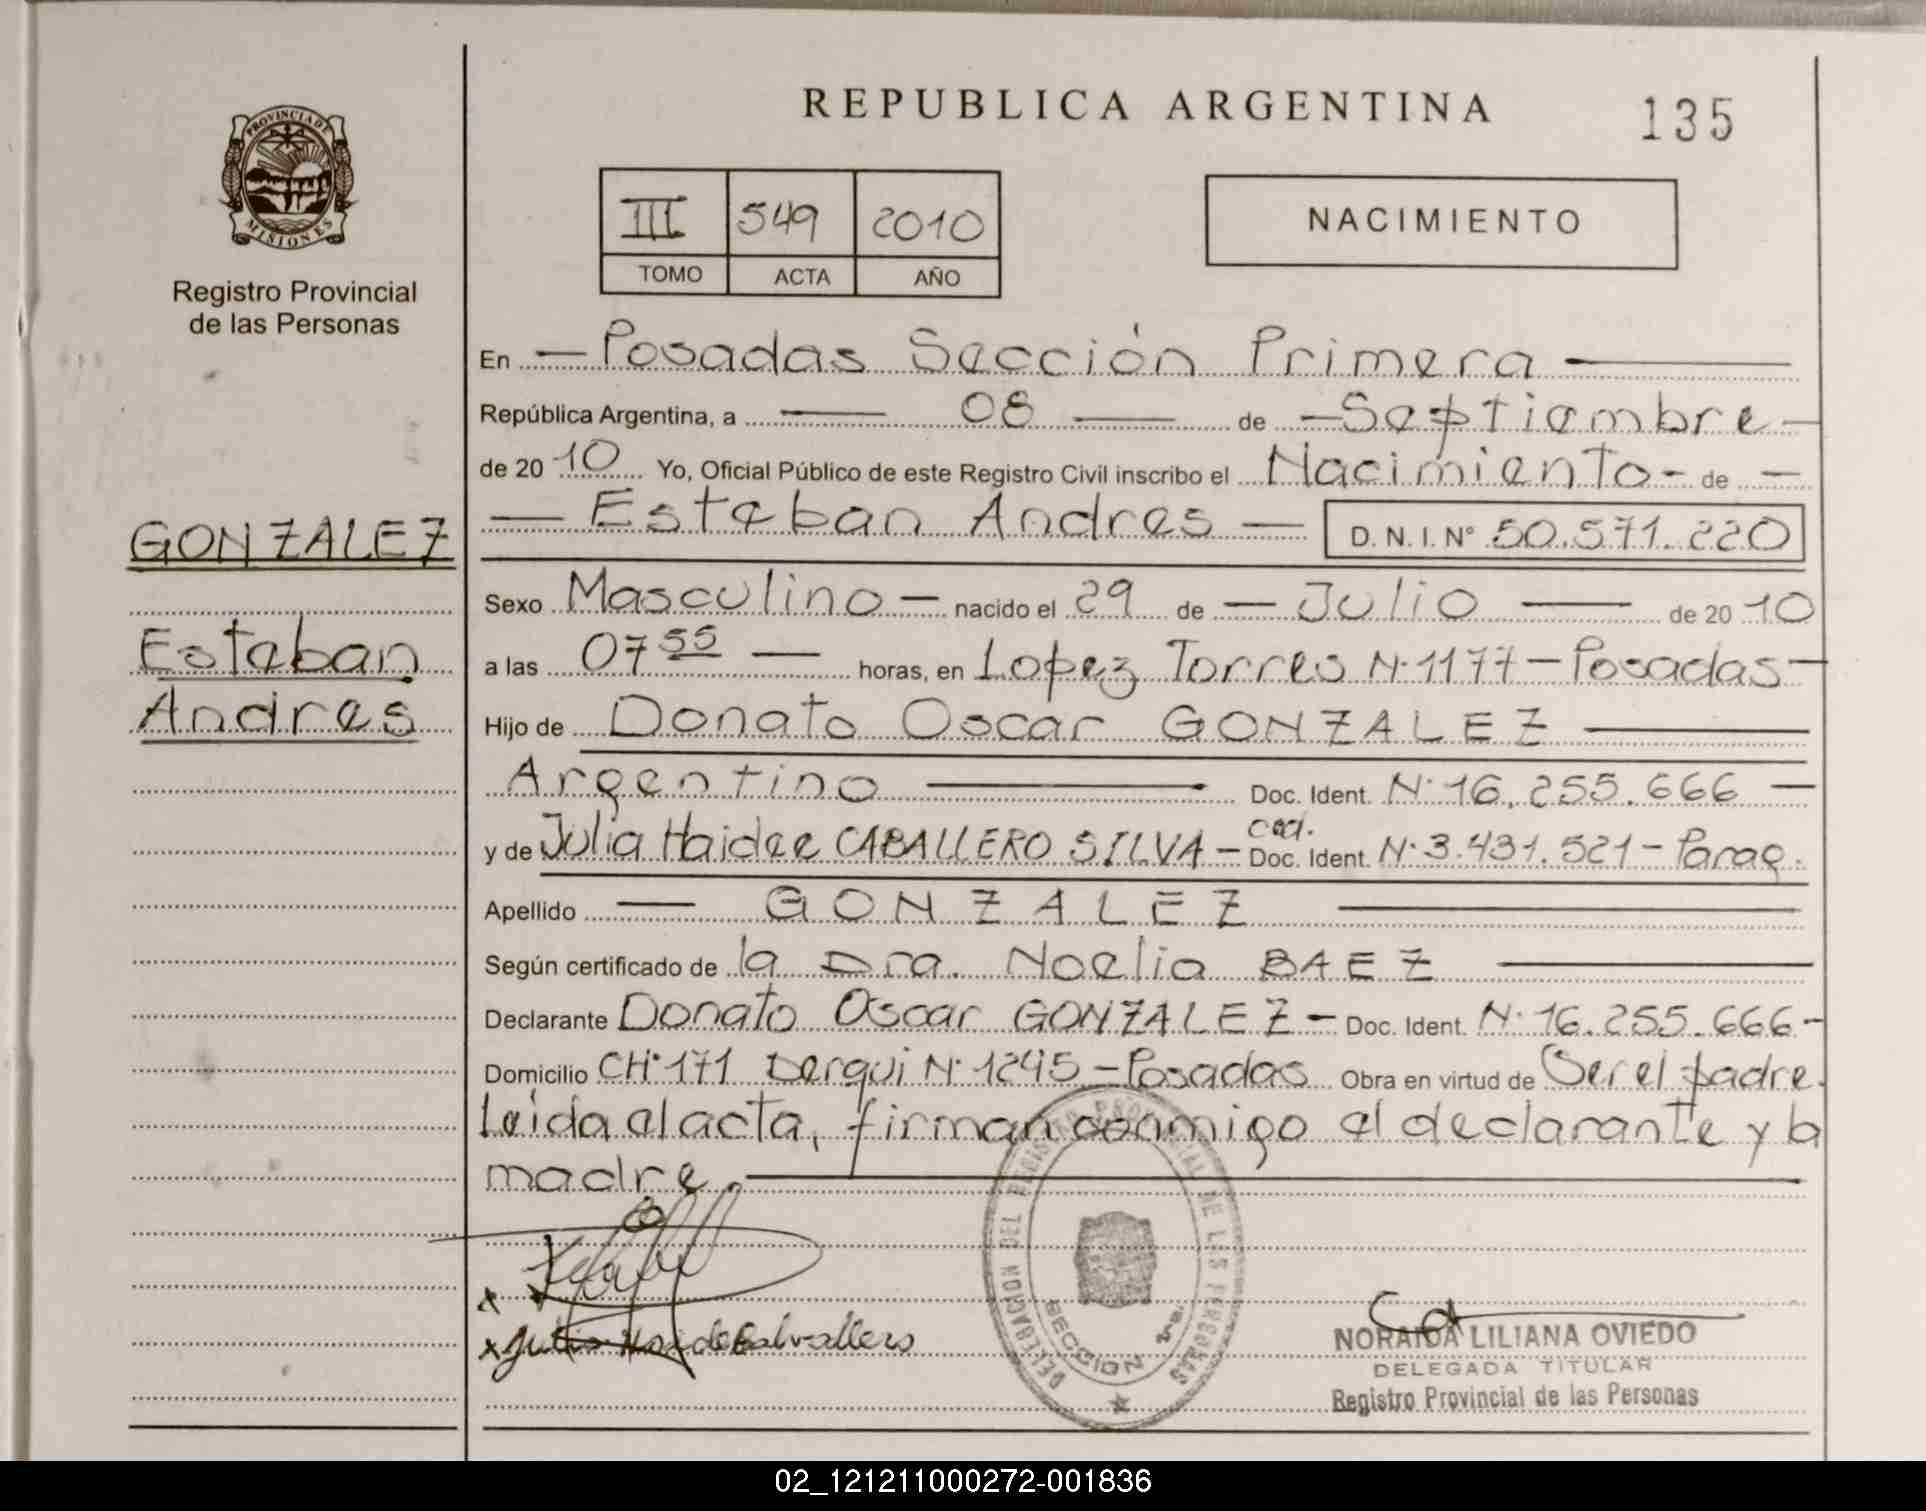 REPUBLICA ARGENTINA
135
PROVINCIA DE
MISIONES
Registro Provincial
de las Personas
III 549 2010
TOMO ACTA AÑO
NACIMIENTO
En Posadas Sección Primera
República Argentina, a 08 de Septiembre
de 20 10 Yo, Oficial Público de este Registro Civil inscribo el Nacimiento de
Esteban Andres D. N. I. Nº 50.571.220
GONZALEZ
Esteban
Andres
Sexo Masculino nacido el 29 de Julio de 20 10
a las 07 55 horas, en Lopez Torres N·1177 - Posadas
Hijo de Donato Oscar GONZALEZ
Argentino Doc. Ident. N· 16.255.666
y de Julia Haidee CABALLERO SILVA - ced. Doc. Ident. N·3.431.521 - Parag.
Apellido GONZALEZ
Según certificado de la Dra. Noelia BAEZ
Declarante Donato Oscar GONZALEZ - Doc. Ident. N· 16.255.666 -
Domicilio CH·171 Derqui N· 1245 - Posadas Obra en virtud de Ser el padre.
Leida el acta, firman conmigo el declarante y la
madre.
DELEGACION DEL REGISTRO PROVINCIAL DE LAS PERSONAS
SECCION 1ra.
NORAIDA LILIANA OVIEDO
DELEGADA TITULAR
Registro Provincial de las Personas
02_121211000272-001836